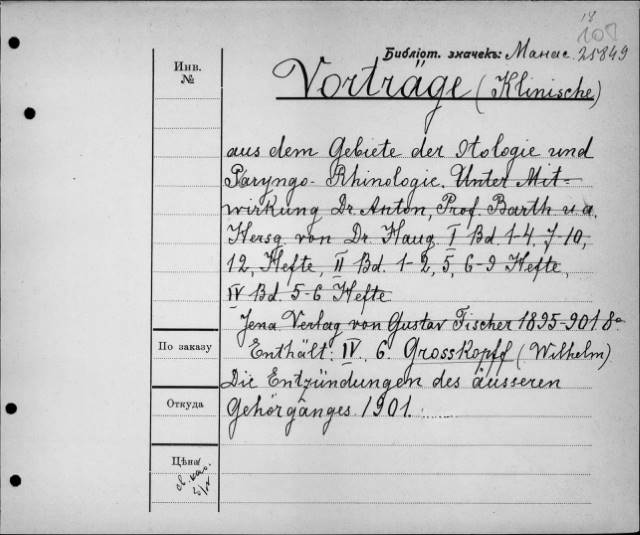 18
107
Библіот. значекъ: Манас. 25849
Инв.
№
Vorträge (Klinische)
aus dem Gebiete der Otologie und
Paryngo-Rhinologie. Unter Mit-
wirkung Dr. Anton, Prof. Barth u. a.
Hersg. von Dr. Haug. I Bd. 1-4, 7-10,
12, Hefte, II Bd. 1-2, 5, 6-9 Hefte,
IV Bd. 5-6 Hefte
Jena Verlag von Gustav Fischer 1895-901 8º
По заказу
Enthält: IV, 6. Grosskopff (Wilhelm)
Die Entzündungen des äusseren
Откуда
Gehörgänges. 1901.
Цѣна